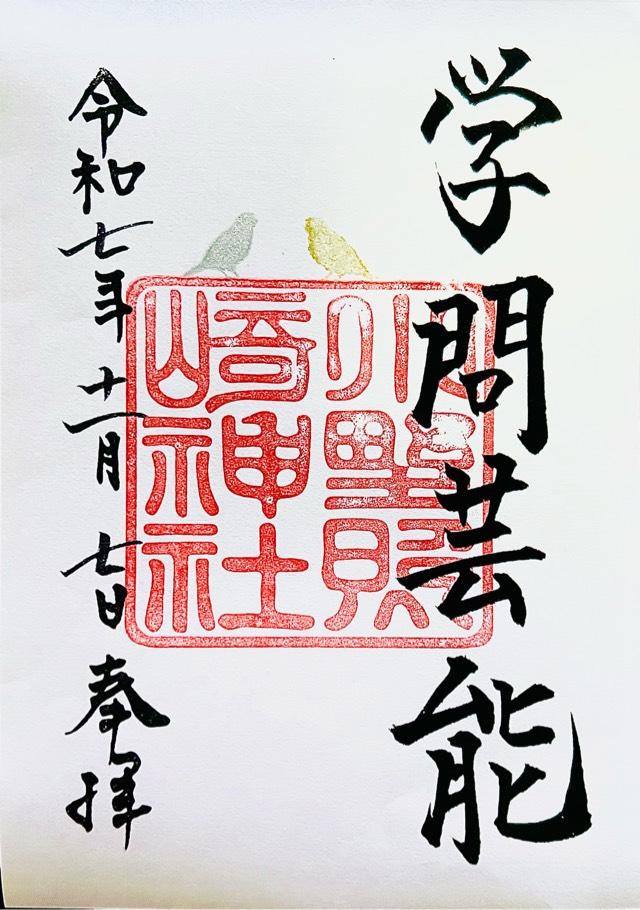 学問芸能
小野照
崎神社
令和七年十一月七日奉拝